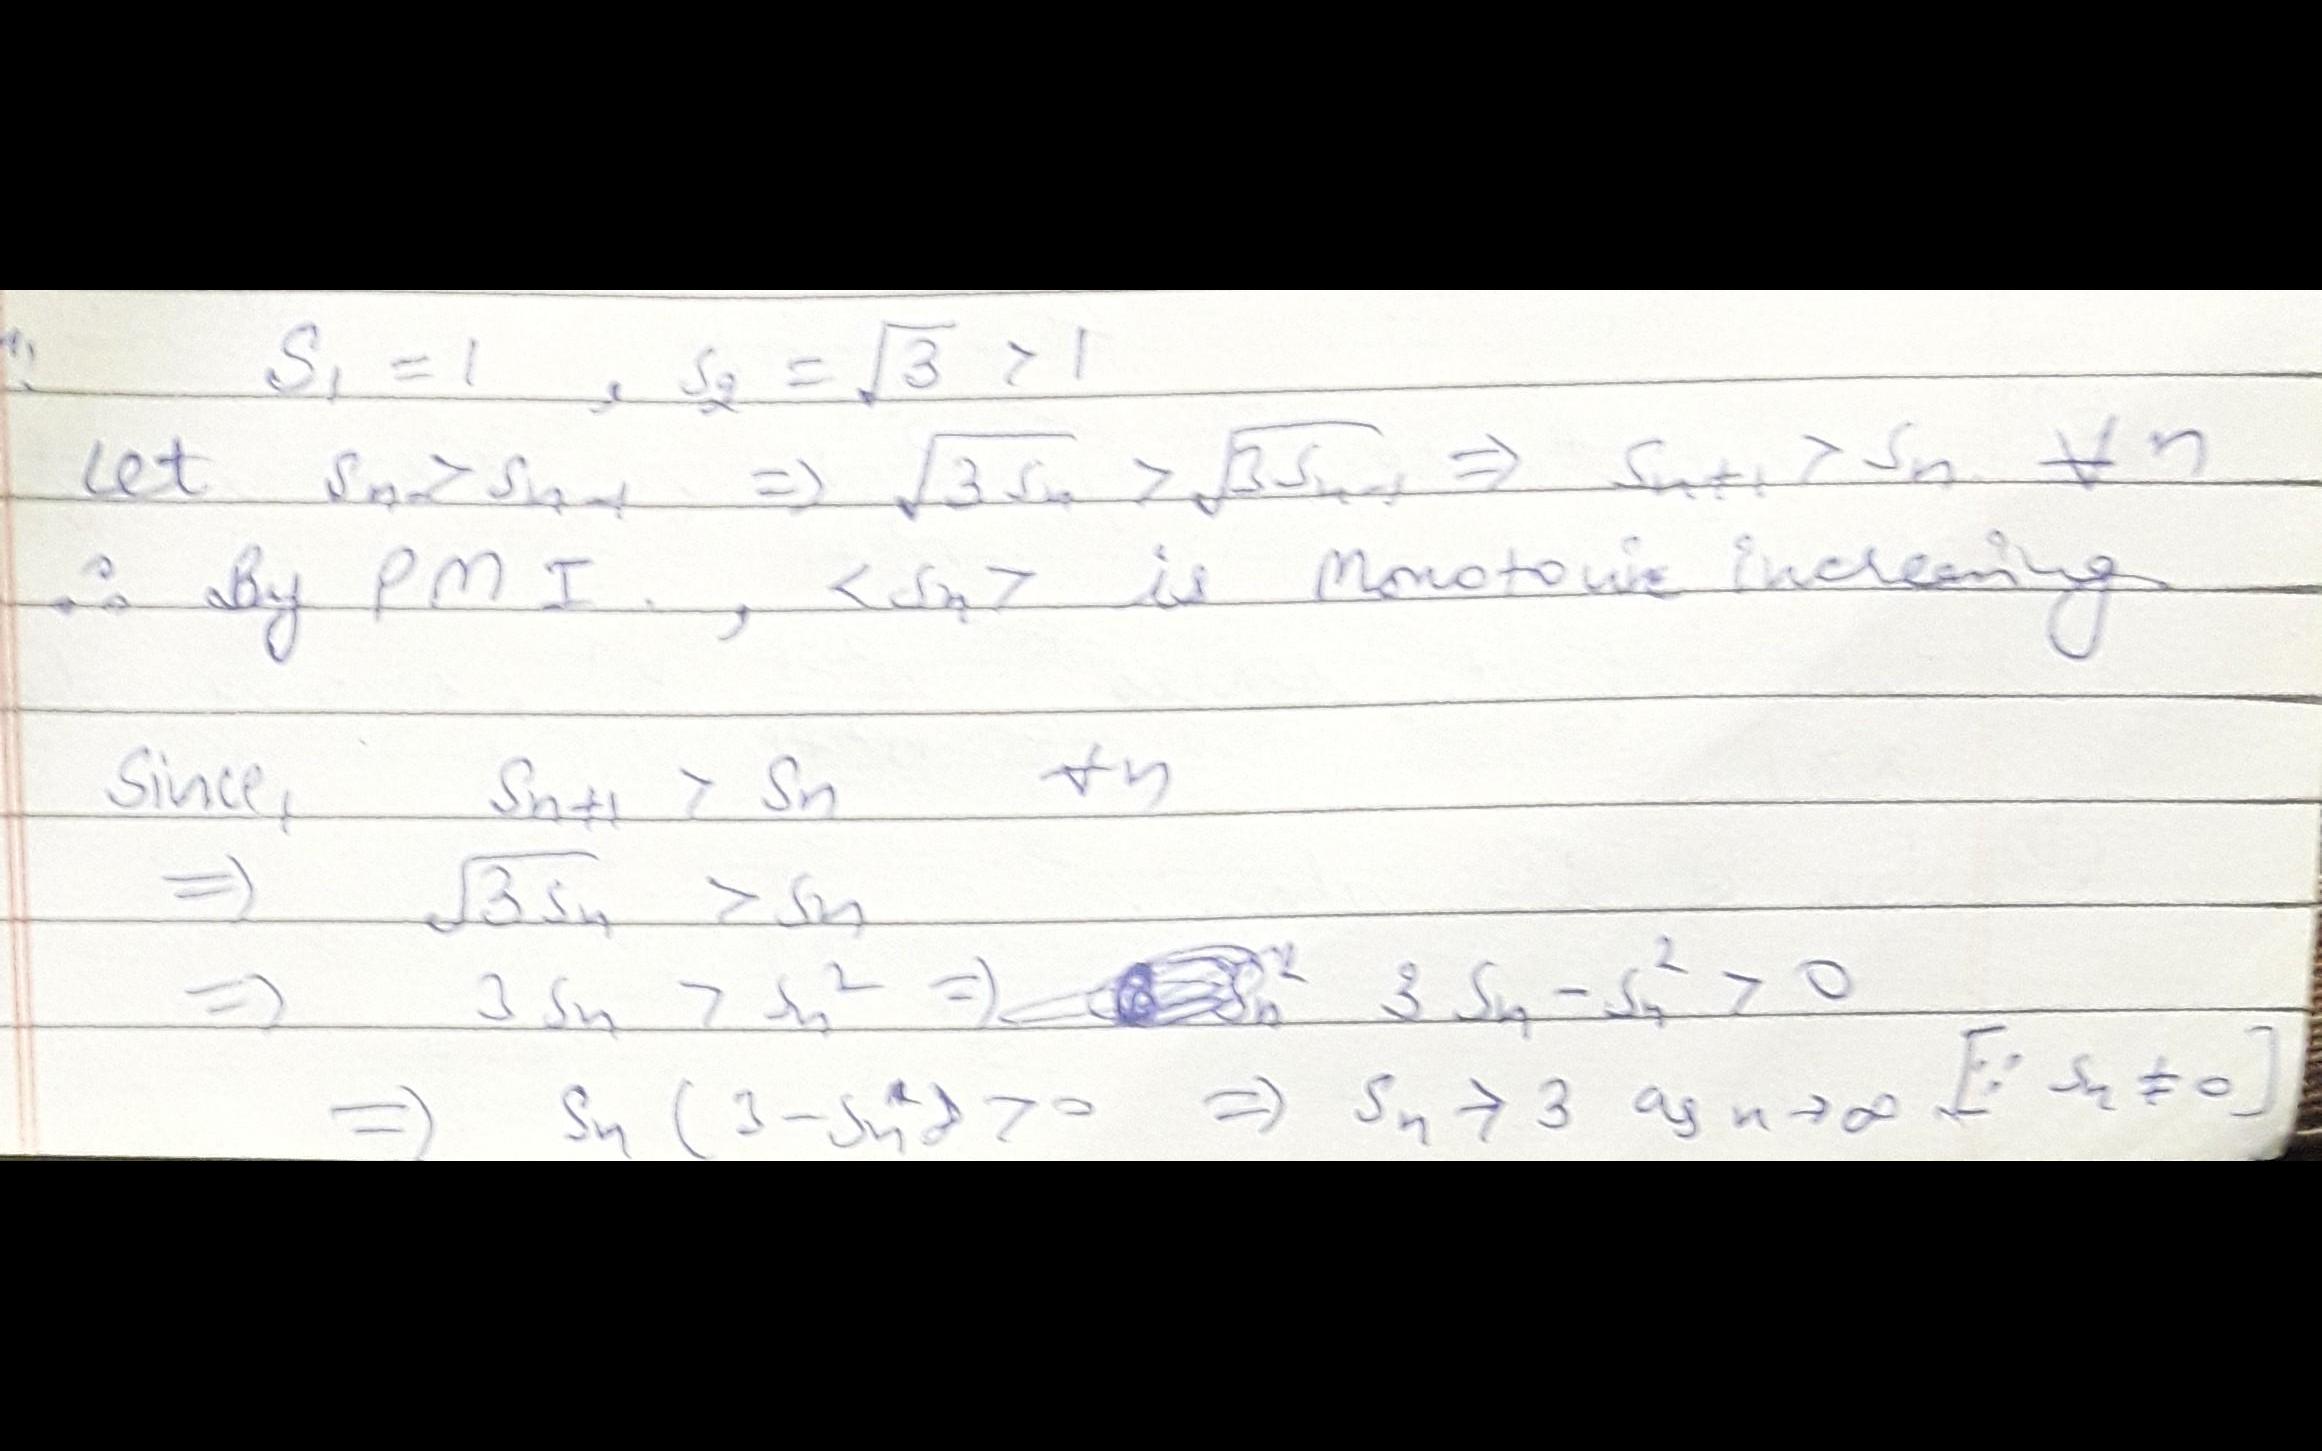 S₁ = 1 , s₂ = √3 > 1
Let sₙ > sₙ₋₁ ⇒ √3sₙ > √3sₙ₋₁ ⇒ sₙ₊₁ > sₙ ∀ n
∴ By PMI. , <sₙ> is Monotonic increasing
Since, sₙ₊₁ > sₙ ∀n
⇒ √3sₙ > sₙ
⇒ 3sₙ > sₙ² ⇒ 3sₙ - sₙ² > 0
⇒ sₙ (3-sₙ) > 0 ⇒ sₙ → 3 as n→∞ [∵ sₙ ≠ 0]